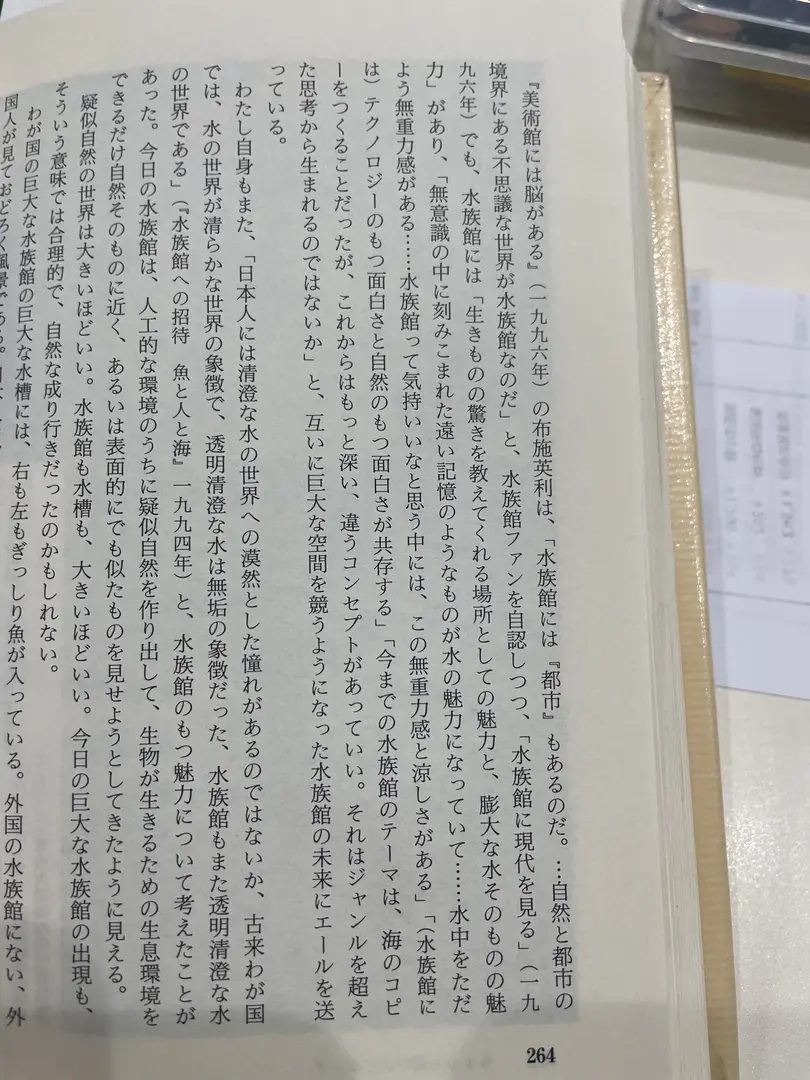 『美術館には脳がある』（一九九六年）の布施英利は、「水族館には『都市』もあるのだ。…自然と都市の
境界にある不思議な世界が水族館なのだ」と、水族館ファンを自認しつつ、「水族館に現代を見る」（一九
九六年）でも、水族館には「生きものの驚きを教えてくれる場所としての魅力と、膨大な水そのものの魅
力」があり、「無意識の中に刻みこまれた遠い記憶のようなものが水の魅力になっていて……水中をただ
よう無重力感がある……水族館って気持いいなと思う中には、この無重力感と涼しさがある」「（水族館に
は）テクノロジーのもつ面白さと自然のもつ面白さが共存する」「今までの水族館のテーマは、海のコピ
ーをつくることだったが、これからはもっと深い、違うコンセプトがあっていい。それはジャンルを超え
た思考から生まれるのではないか」と、互いに巨大な空間を競うようになった水族館の未来にエールを送
っている。
わたし自身もまた、「日本人には清澄な水の世界への漠然とした憧れがあるのではないか、古来わが国
では、水の世界が清らかな世界の象徴で、透明清澄な水は無垢の象徴だった、水族館もまた透明清澄な水
の世界である」（『水族館への招待　魚と人と海』一九九四年）と、水族館のもつ魅力について考えたことが
あった。今日の水族館は、人工的な環境のうちに疑似自然を作り出して、生物が生きるための生息環境を
できるだけ自然そのものに近く、あるいは表面的にでも似たものを見せようとしてきたように見える。
疑似自然の世界は大きいほどいい。水族館も水槽も、大きいほどいい。今日の巨大な水族館の出現も、
そういう意味では合理的で、自然な成り行きだったのかもしれない。
わが国の巨大な水族館の巨大な水槽には、右も左もぎっしり魚が入っている。外国の水族館にない、外
国人が見ておどろく風景である。
264